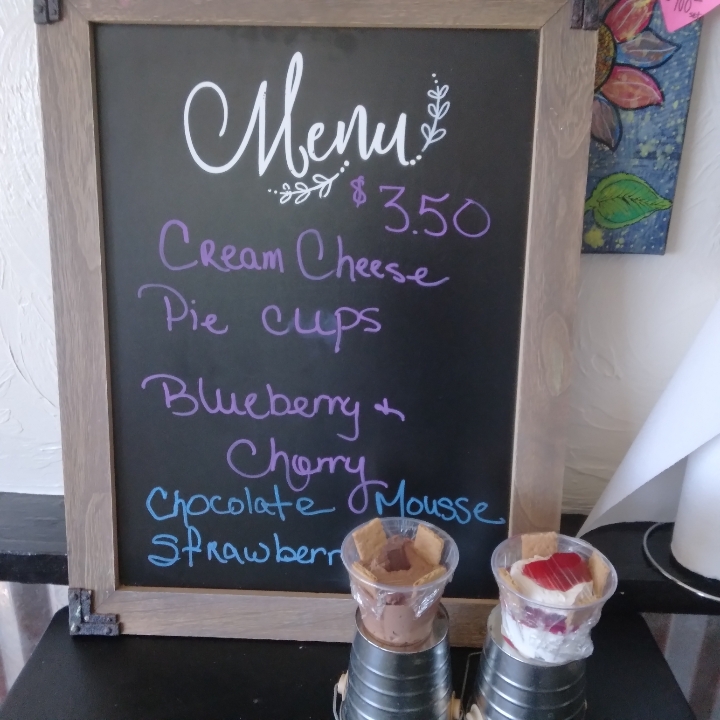 Menu
$3.50
Cream Cheese
Pie cups
Blueberry +
Cherry
Chocolate Mousse
Strawberr